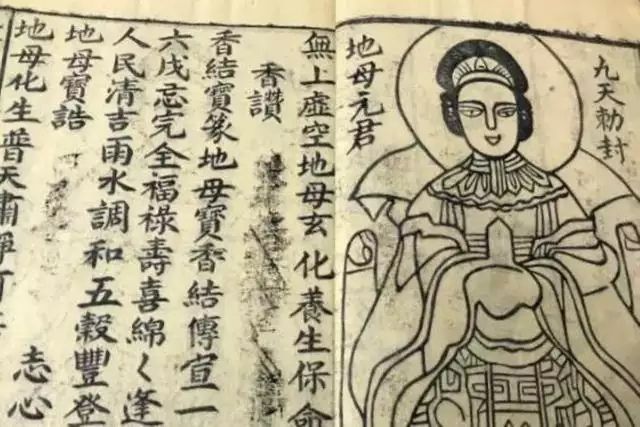 九天勅封
地母元君
無上虛空地母玄化養生保命
香讚
香結寶篆地母寶香結傳宣一
六戊忌完全福祿壽喜綿〱逢
人民清吉雨水調和五穀豐登
地母寶誥 志心
地母化生普天肅靜